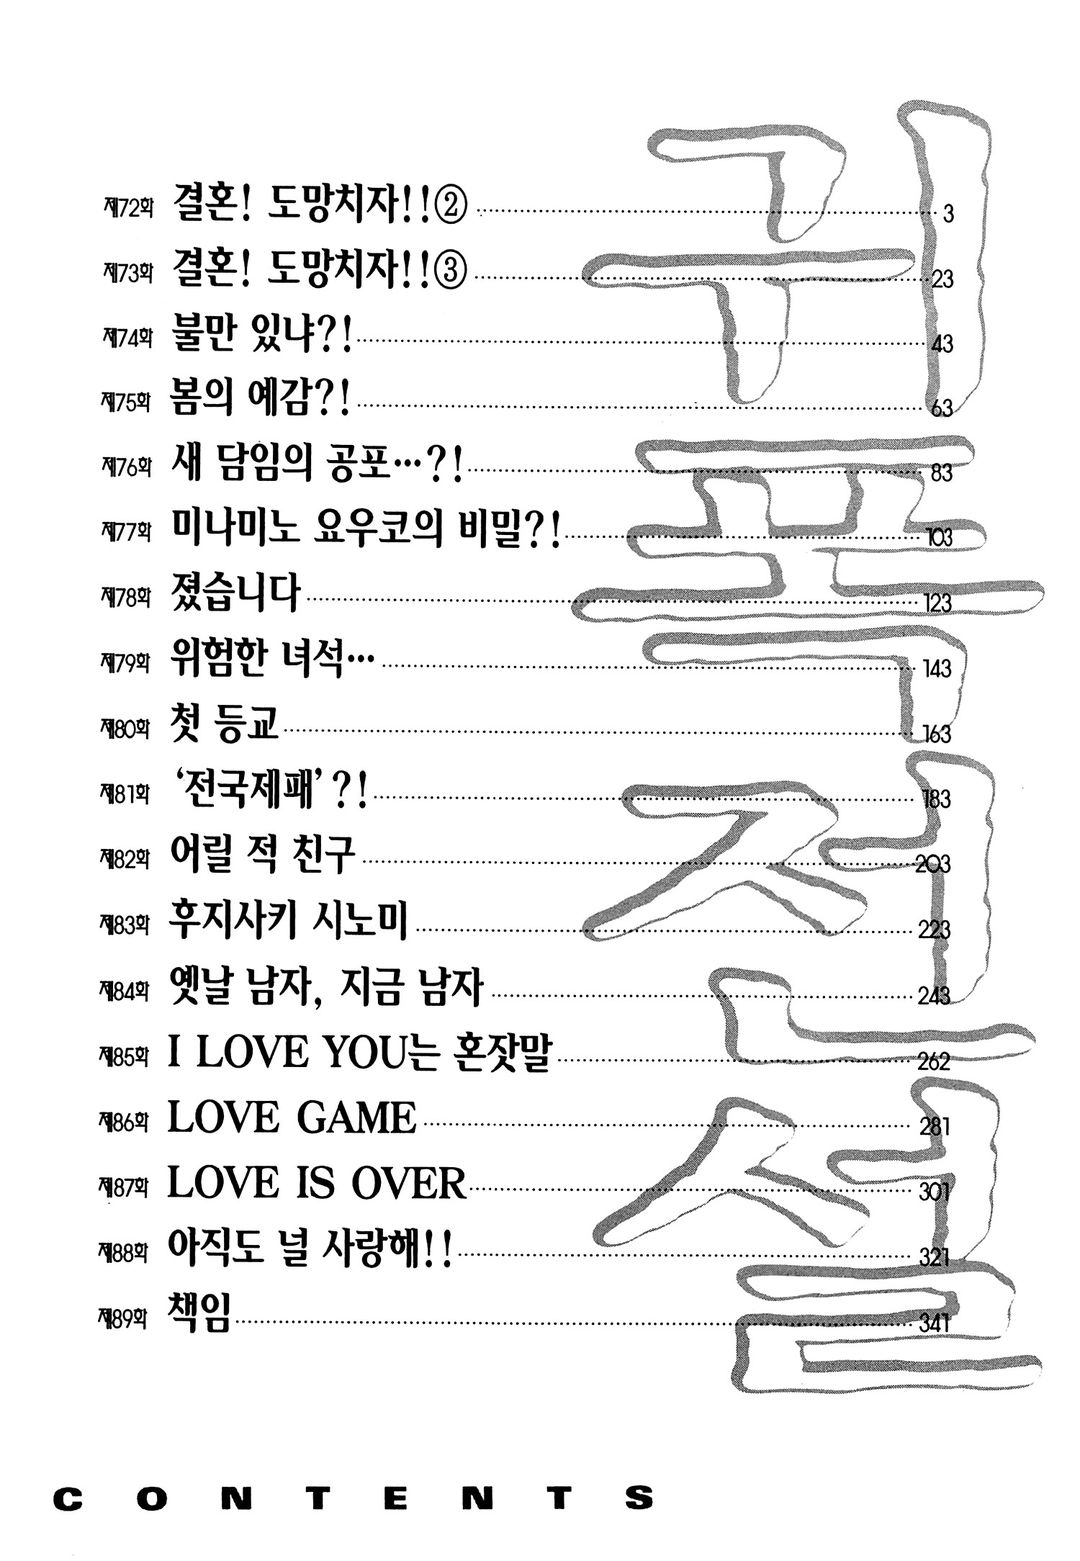 귀폭전설
제72화 결혼! 도망치자!!② 3
제73화 결혼! 도망치자!!③ 23
제74화 불만 있냐?! 43
제75화 봄의 예감?! 63
제76화 새 담임의 공포…?! 83
제77화 미나미노 요우코의 비밀?! 103
제78화 졌습니다 123
제79화 위험한 녀석… 143
제80화 첫 등교 163
제81화 ‘전국제패’?! 183
제82화 어릴 적 친구 203
제83화 후지사키 시노미 223
제84화 옛날 남자, 지금 남자 243
제85화 I LOVE YOU는 혼잣말 262
제86화 LOVE GAME 281
제87화 LOVE IS OVER 301
제88화 아직도 널 사랑해!! 321
제89화 책임 341
CONTENTS